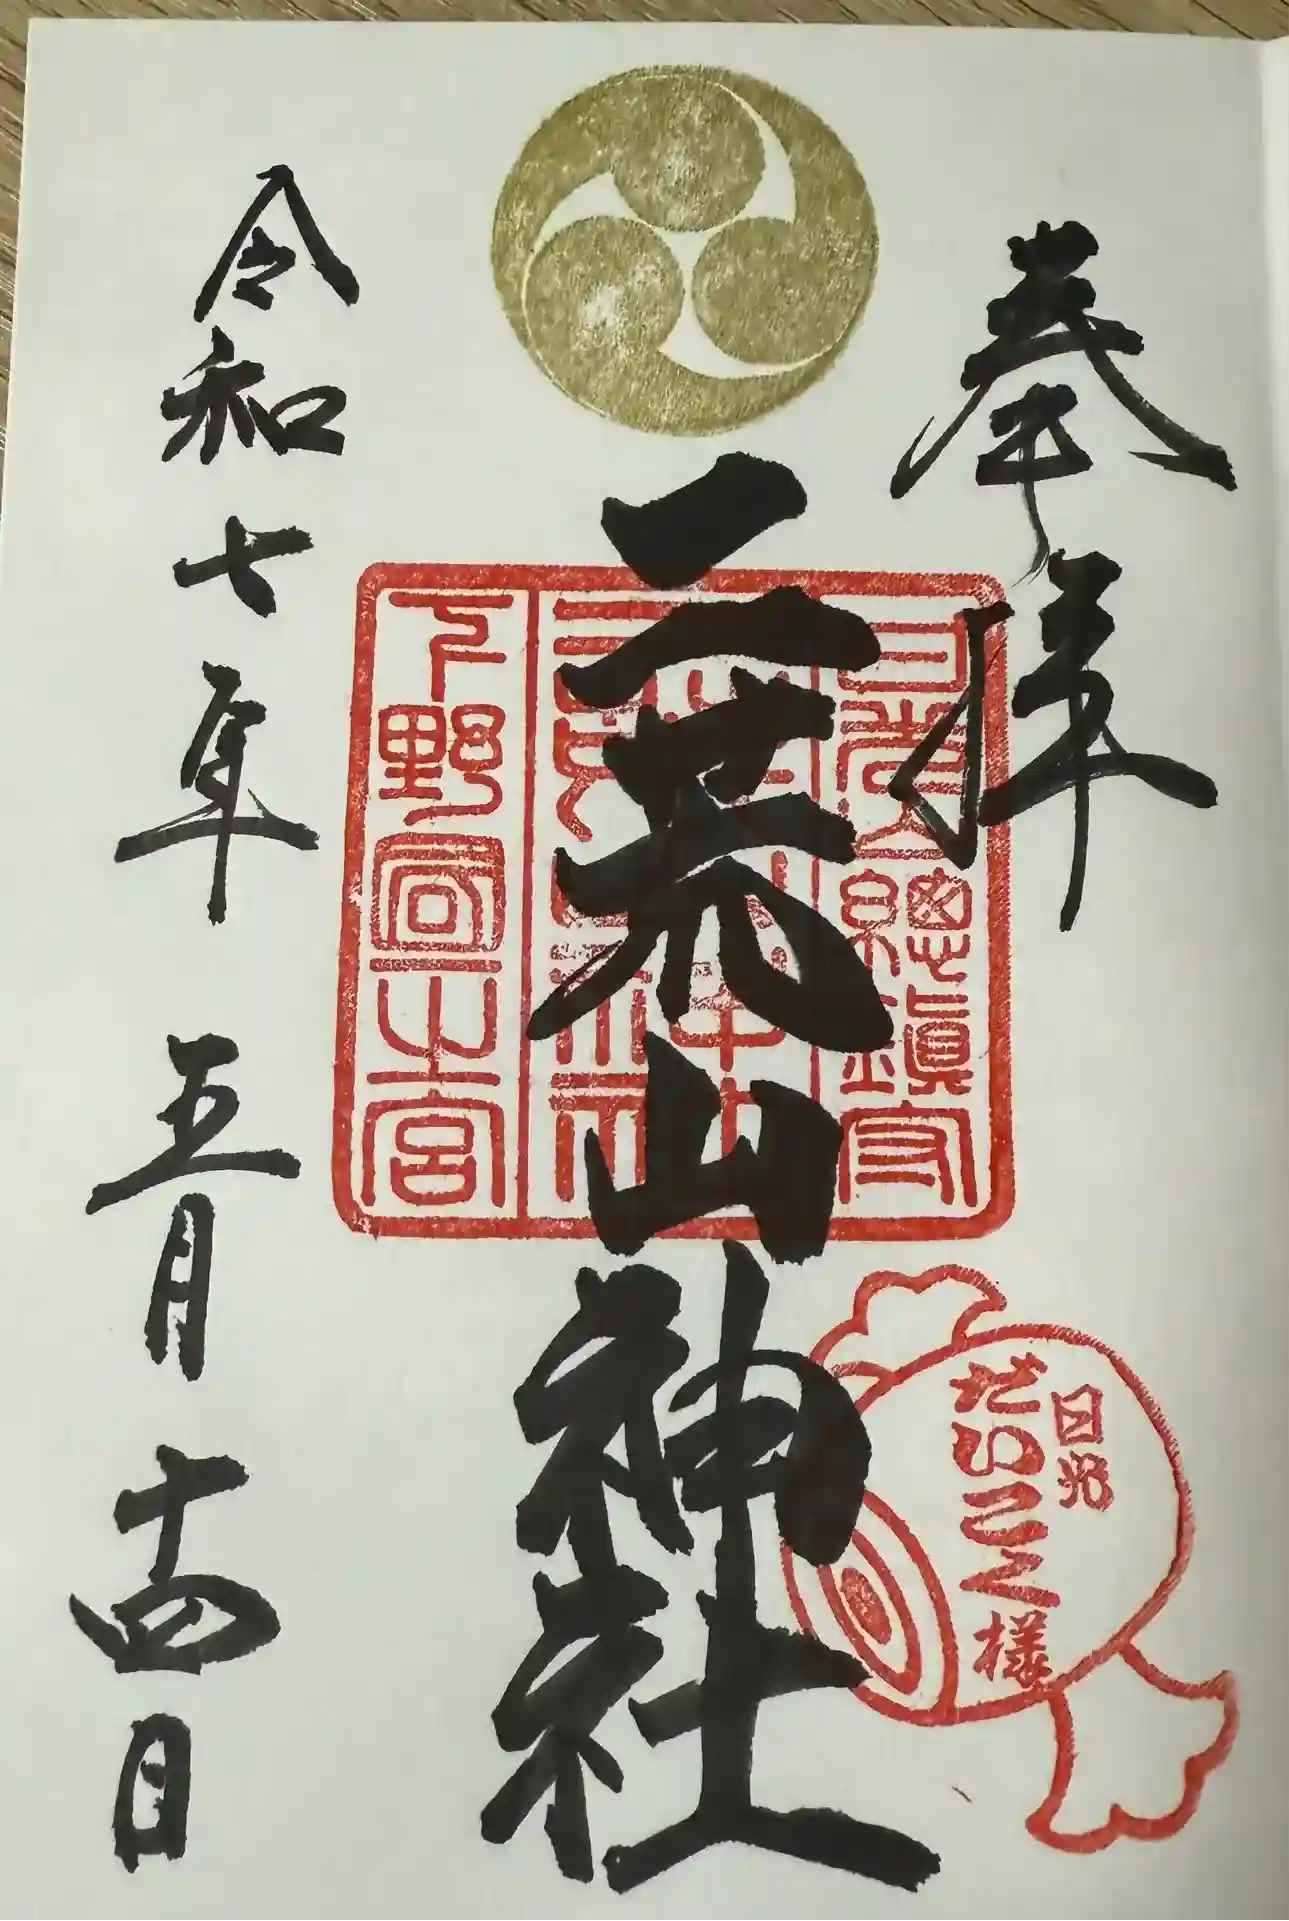 奉拝
日光總鎮守
二荒山神社
下野國一之宮
日光
だいこく様
令和七年五月十四日